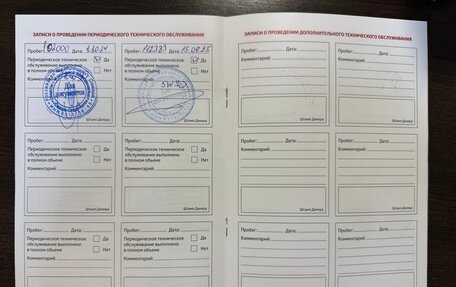 ЗАПИСИ О ПРОВЕДЕНИИ ПЕРИОДИЧЕСКОГО ТЕХНИЧЕСКОГО ОБСЛУЖИВАНИЯ
Пробег: Дата:
Периодическое техническое обслуживание выполнено в полном объеме
Да
Нет
Комментарий:
Штамп Дилера
Пробег: 112383 Дата: 15.08.25
Периодическое техническое обслуживание выполнено в полном объеме
Да
Нет
Комментарий:
5W30
Штамп Дилера
Пробег: Дата:
Периодическое техническое обслуживание выполнено в полном объеме
Да
Нет
Комментарий:
Штамп Дилера
Пробег: Дата:
Периодическое техническое обслуживание выполнено в полном объеме
Да
Нет
Комментарий:
Штамп Дилера
Пробег: Дата:
Периодическое техническое обслуживание выполнено в полном объеме
Да
Нет
Комментарий:
Пробег: Дата:
Периодическое техническое обслуживание выполнено в полном объеме
Да
Нет
Комментарий:
ЗАПИСИ О ПРОВЕДЕНИИ ДОПОЛНИТЕЛЬНОГО ТЕХНИЧЕСКОГО ОБСЛУЖИВАНИЯ
Пробег: Дата:
Комментарий:
Штамп Дилера
Пробег: Дата:
Комментарий:
Штамп Дилера
Пробег: Дата:
Комментарий:
Штамп Дилера
Пробег: Дата:
Комментарий:
Штамп Дилера
Пробег: Дата:
Комментарий:
Пробег: Дата:
Комментарий: